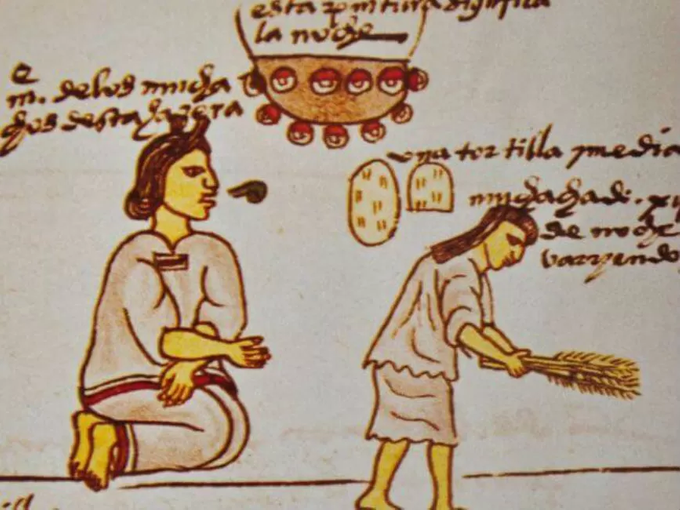 esta pintura significa
la noche
m. de los mucha
chos desta ha
una tortilla y media
muchacha de
de noche
varriendo